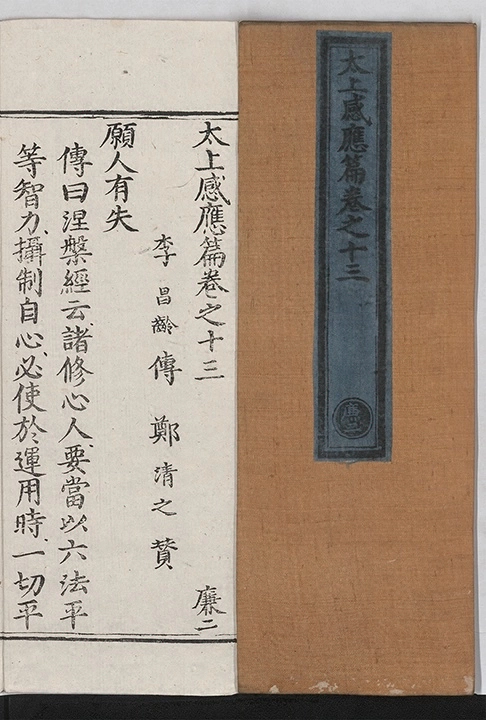 太上感應篇卷之十三
廉二
太上感應篇卷之十三 廉二
李昌齡傳 鄭清之贊
願人有失
傳曰涅槃經云諸修心人要當以六法平
等智力攝制自心必使於運用時一切平